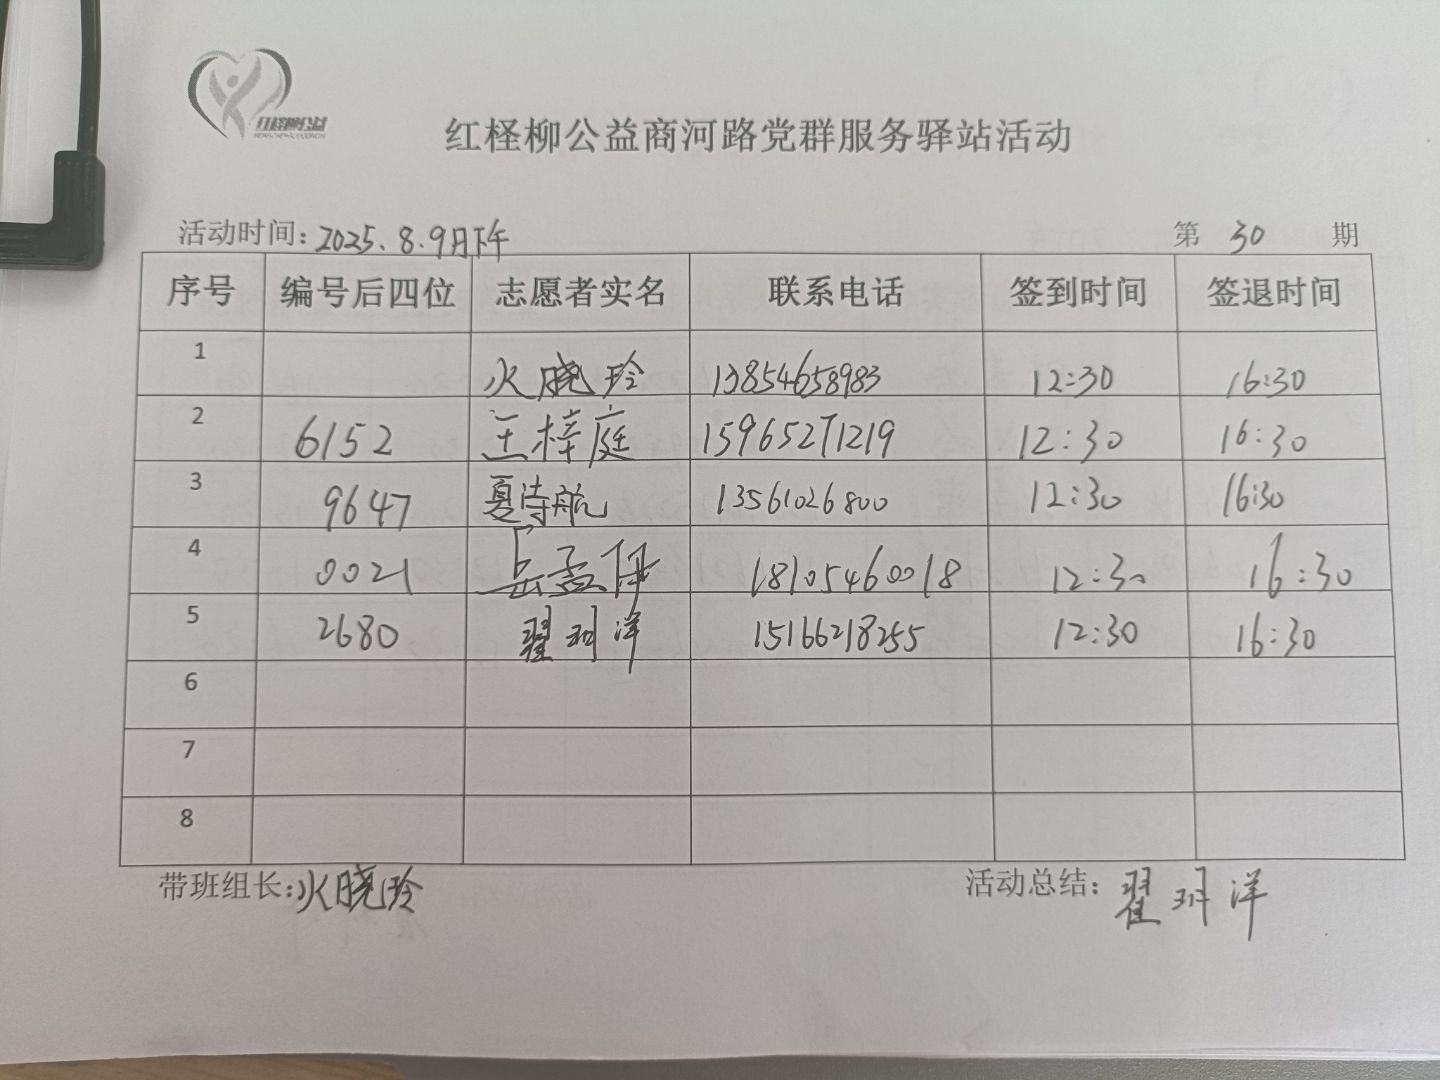 红柽柳公益
红柽柳公益商河路党群服务驿站活动
活动时间：2025.8.9日下午 第 30 期
序号 编号后四位 志愿者实名 联系电话 签到时间 签退时间
1 火晓玲 13854658983 12:30 16:30
2 6152 王梓庭 15965271219 12:30 16:30
3 9647 夏诗航 13561026800 12:30 16:30
4 0021 岳孟伊 18105460018 12:30 16:30
5 2680 翟玥洋 15166218255 12:30 16:30
6
7
8
带班组长：火晓玲 活动总结：翟玥洋